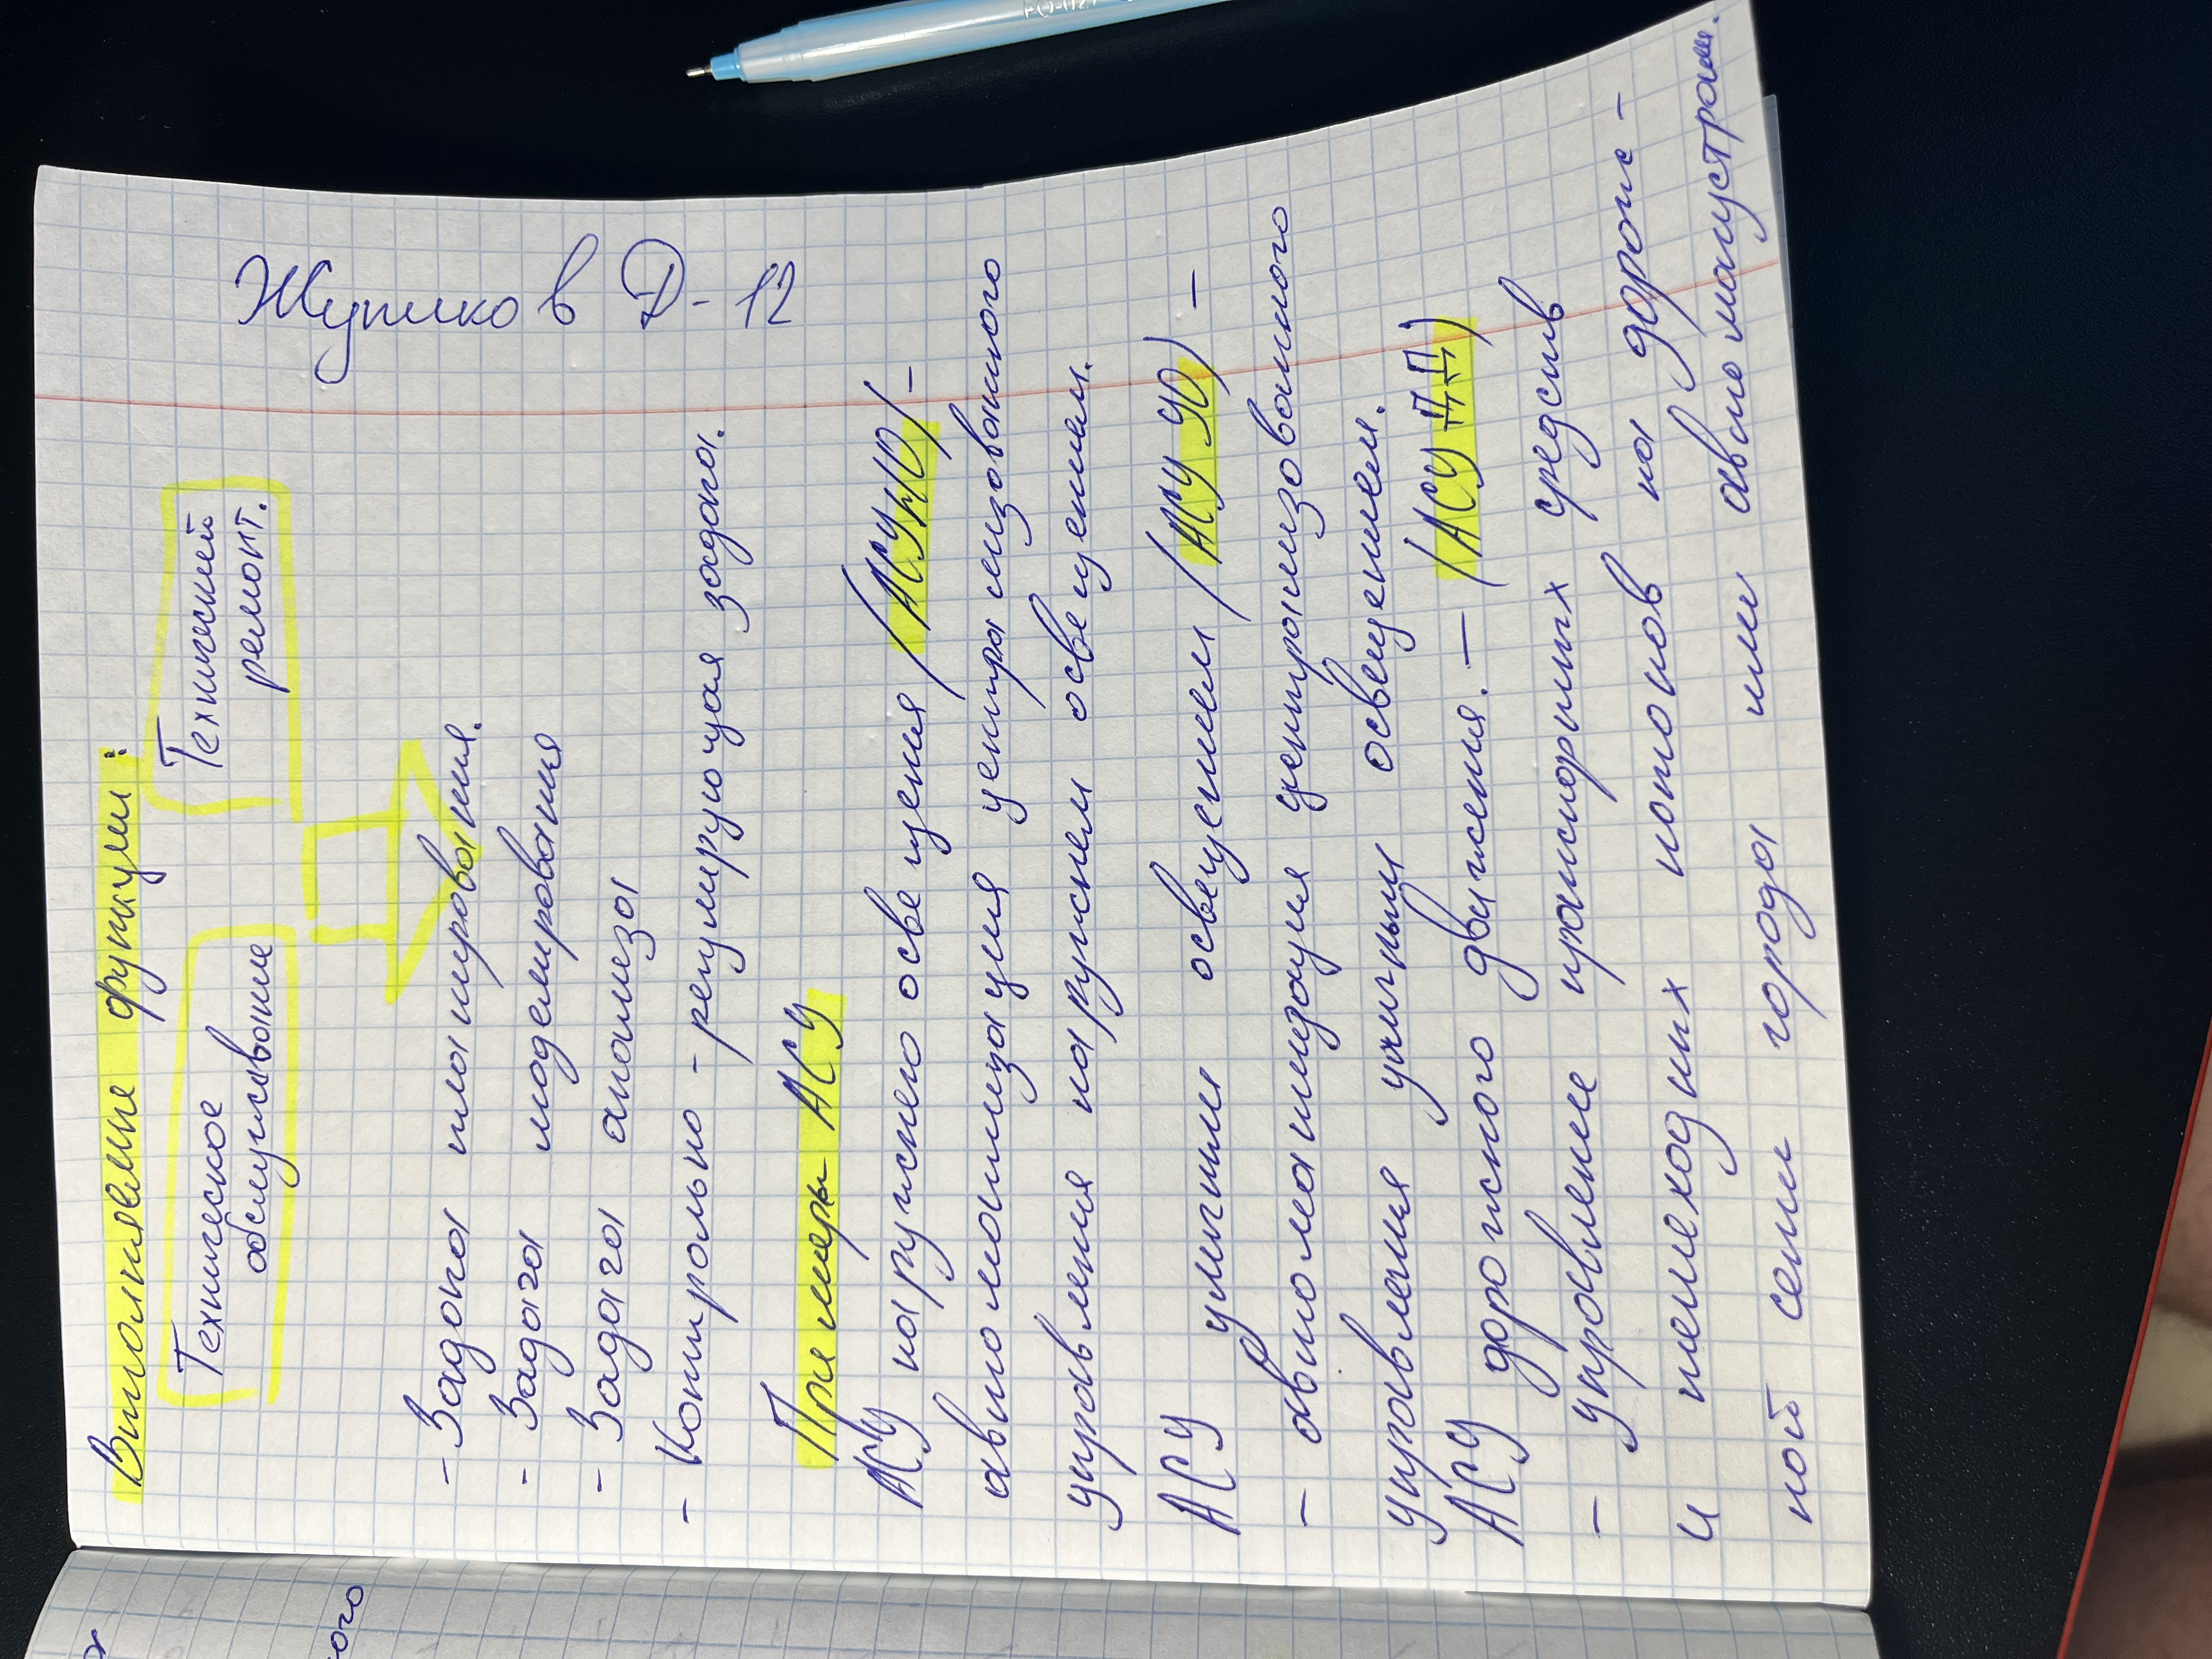 Выполняемые функции:
Техническое обслуживание
Технический ремонт.
Жупиков Д-12
- Задача планирования.
- Задача моделирования
- Задача анализа
- Контрольно - регулирующая задача.
Примеры АСУ
АСУ наружного освещения (АСУ НО) –
автоматизация централизованного
управления наружнем освещением.
АСУ уличним освещением (АСУ УО) –
- автоматизация централизованного
управления уличным освещением.
АСУ дорожного движения. – (АСУ ДД)
- управление транспортных средств
и пешеходных потоков на дорож -
ной сети города или автомагистрали.
ого